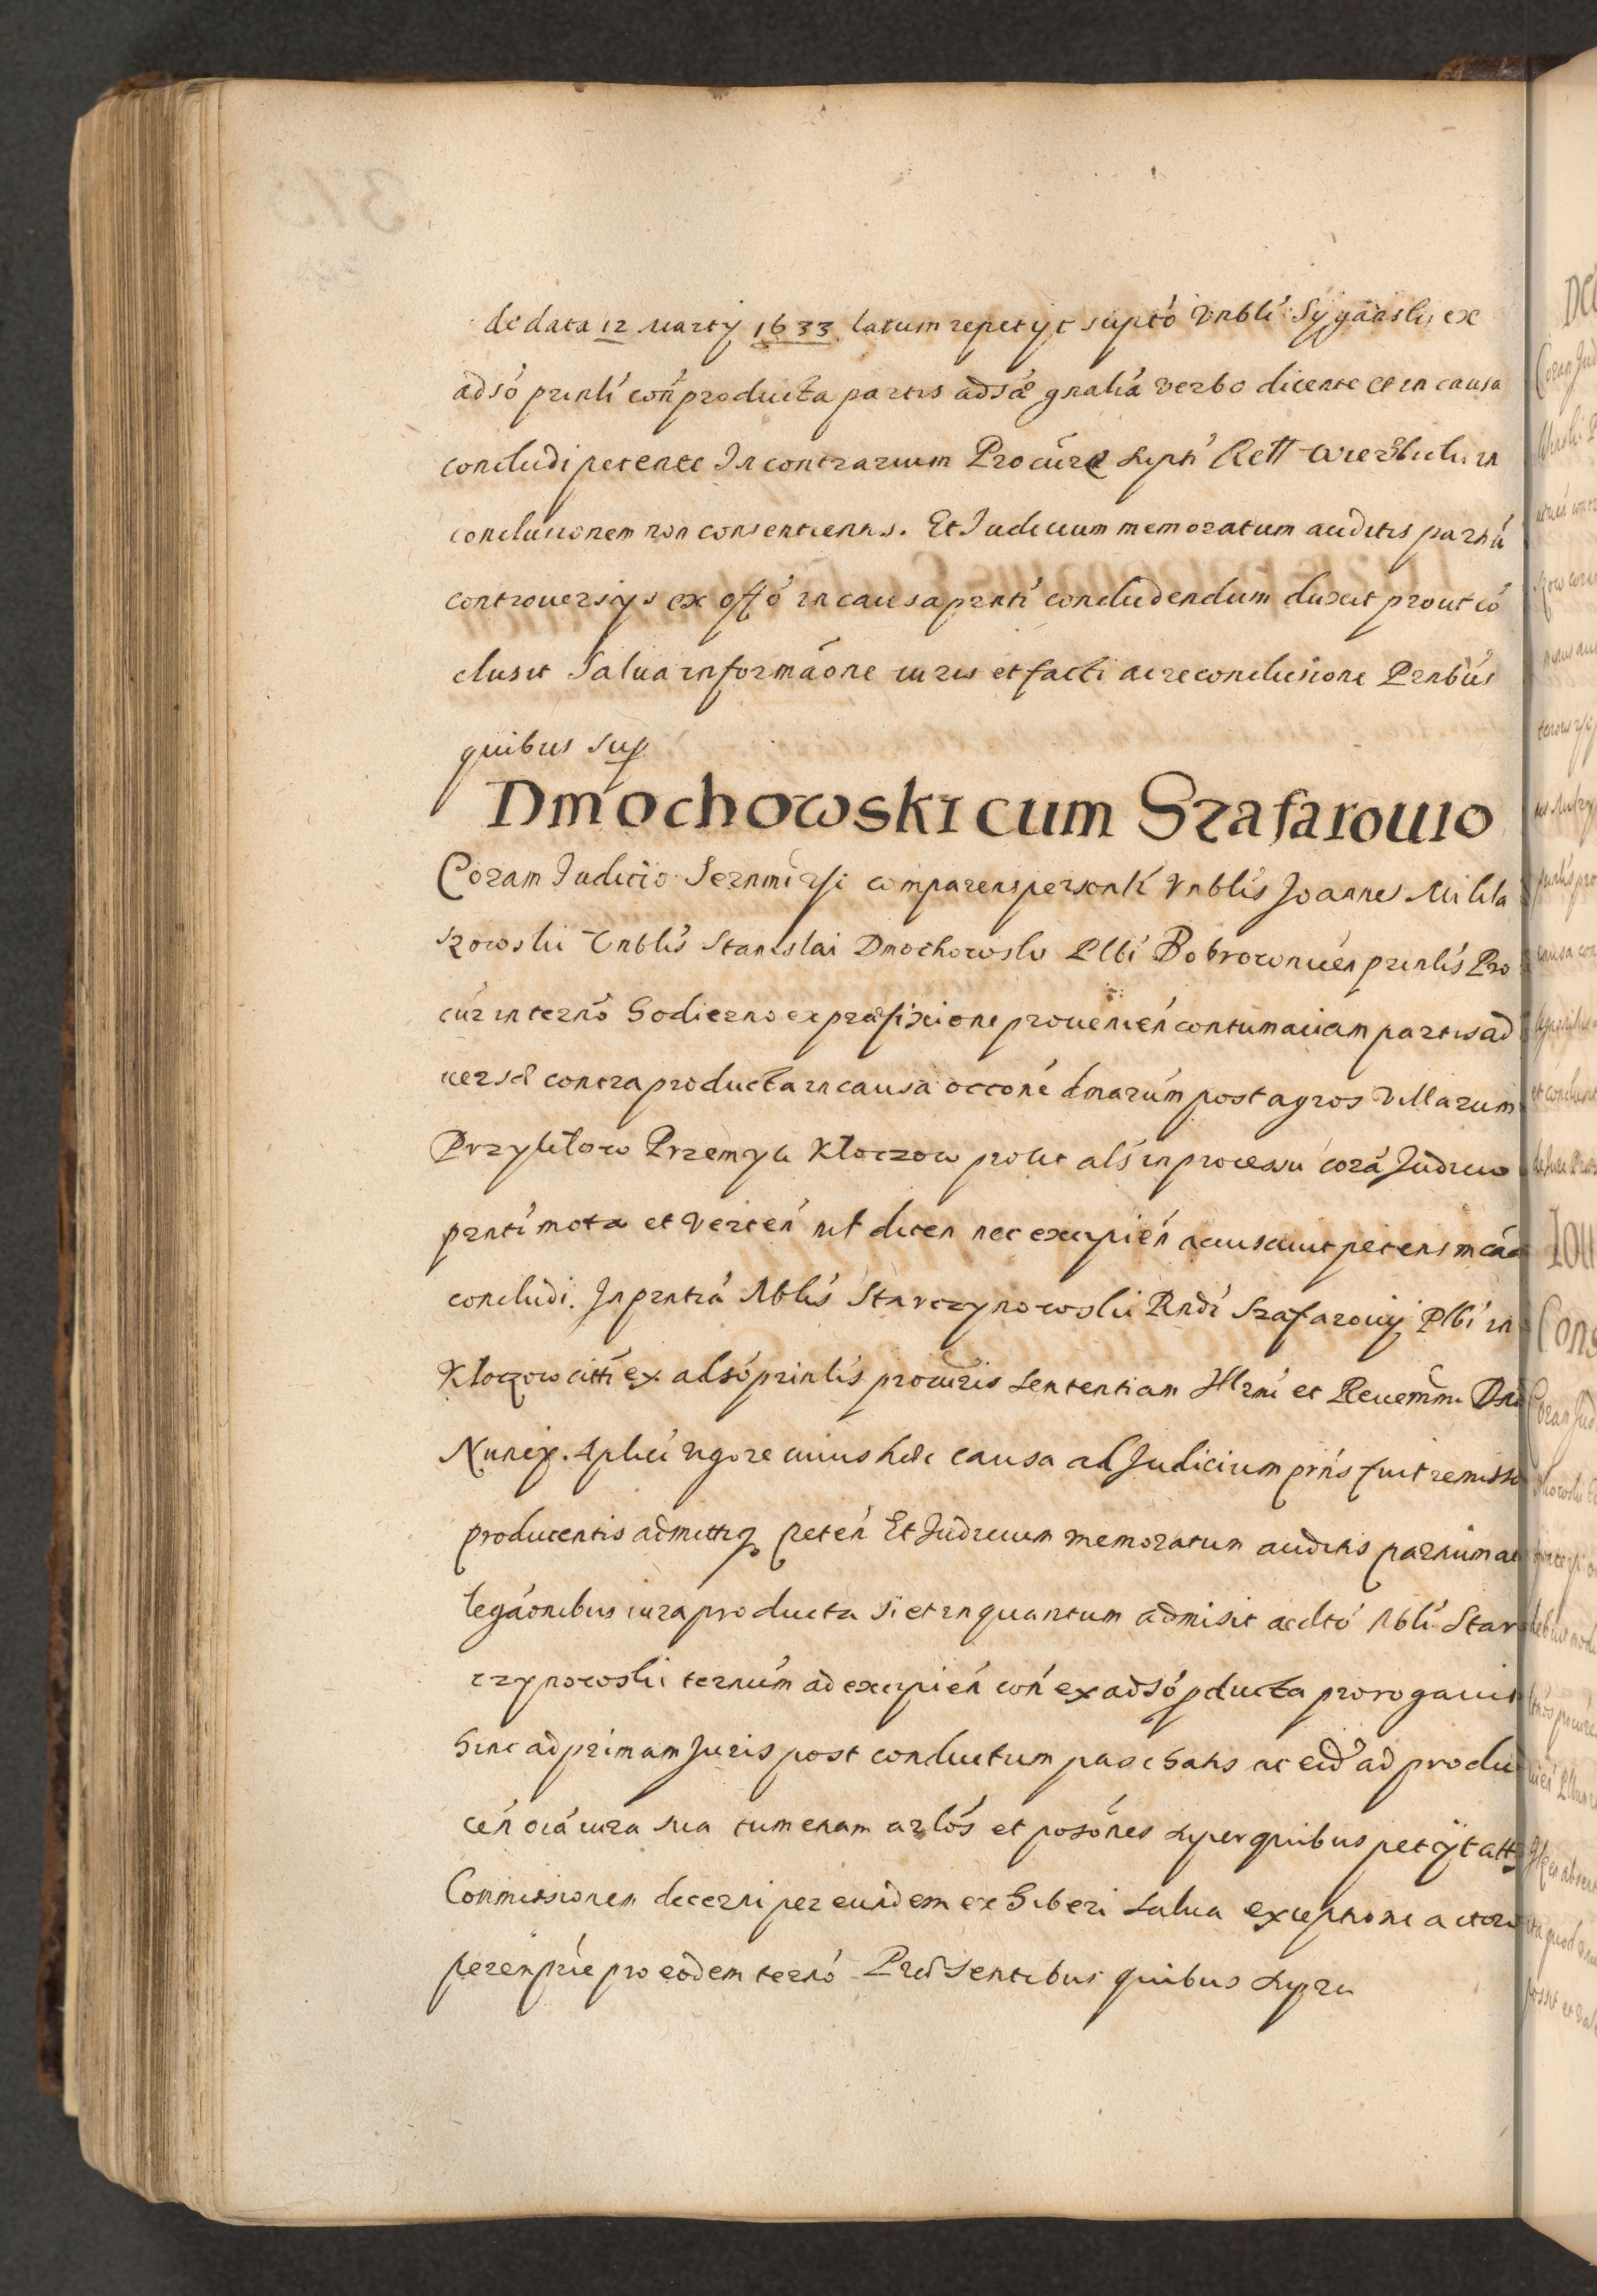 de data 12 Martij 1633 latum repetijt supto Vnbli Syganski ex
adso prinli con producta partis adsæ gnalia verbo dicente et in causa
concludi petente In contrarium Procure supti Rett Wierzbicki in
conclusionem non consentientis. Et Judicium memoratum auditis partiu
controuersijs ex offo in causa prnti concludendum duxit prout co
clusit Salua informaone iuris et facti ac reconclusione Prntbus
quibus sup
Dmochowski cum Szafarouio
Coram Judicio Sernmirsi comparens personlr Vnblis Joannes Mikla
szowski Vnblis Stanislai Dmochowski Plbi Bobrownicen prinlis Pro
cur in termo hodierno ex præfixione prouenien contumaciam partis ad
uersæ contra producta in causa occone dmarum post agros Villarum
Przykitow Przemyk Kłoczow prout als in processu cora Judicio
prnti mota et verten nil dicen nec excipien accusauit petens in ca
concludi. In prntia Nblis Starczynowski Rndi Szafarouij Plbi in
Kłoczow citti ex adso prinlis procuris sententiam Illrmi et Reuemmi Dni
Nuncij. Aplici vigore cuius hæc causa ad Judicium prns fuit remissa
producentis admittiq peten Et Judicium memoratum auditis partium al
legaonibus iura producta si et in quantum admisit ac dto Nbli Star
czynowski termum ad excipien con ex adso pducta prorogauit
hinc ad primam Juris post conductum paschatis ac eid ad produ
cen oia iura sua tum etiam arlos et posones super quibus petijt att
Commissionem decerni per eundem exhiberi salua exceptione actori
peremprie pro eodem termo Præsentibus quibus supra